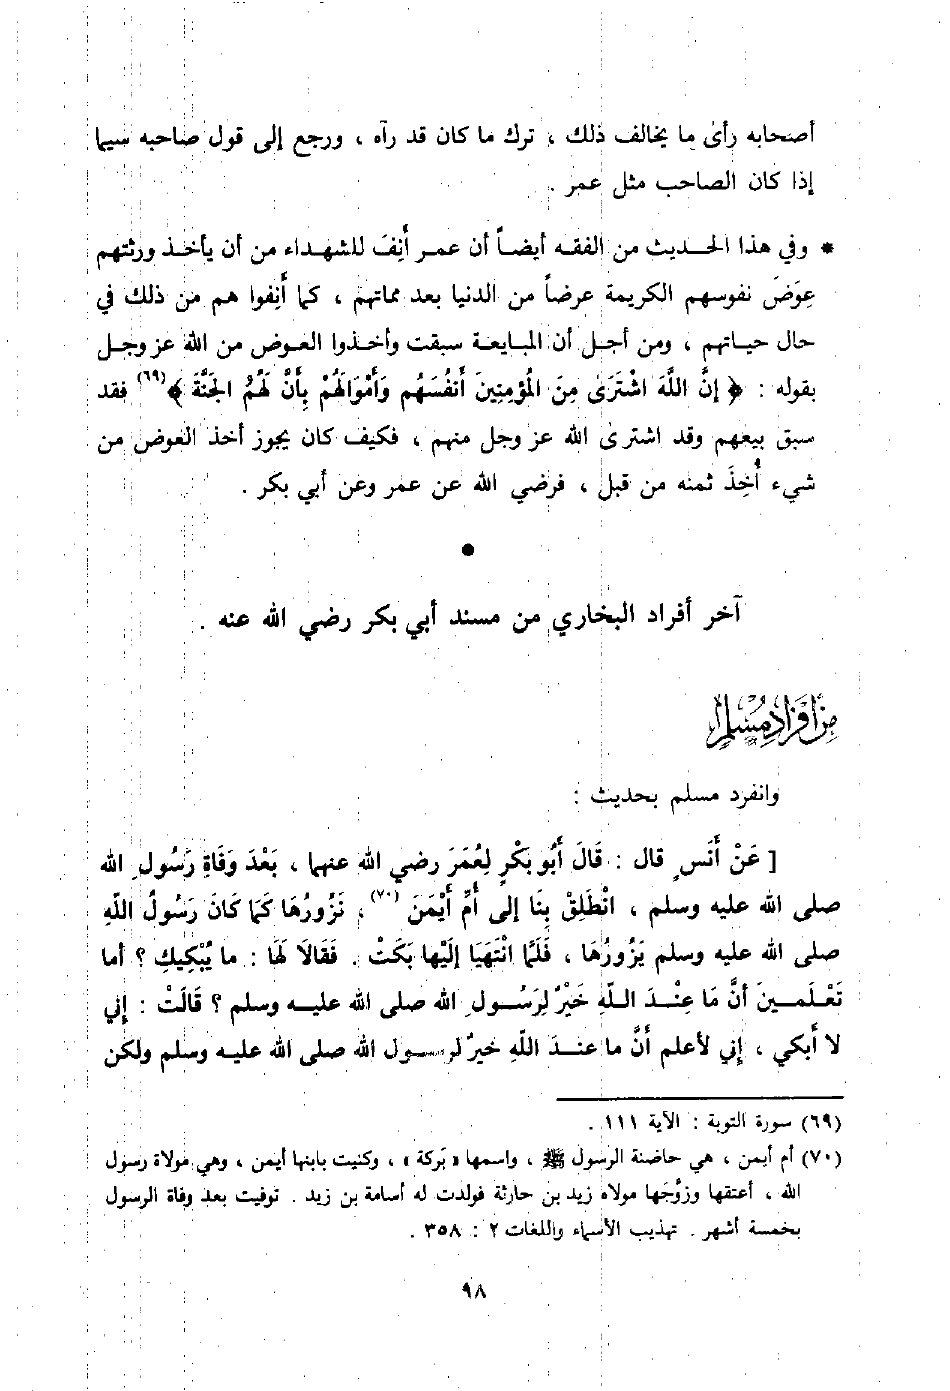 أصحابه رأى ما يخالف ذلك ، ترك ما كان قد رآه ، ورجع إلى قول صاحبه سيما
إذا كان الصاحب مثل عمر .
* وفي هذا الحديث من الفقه أيضاً أن عمر أَنِفَ للشهداء من أن يأخذ ورثتهم
عِوَضَ نفوسهم الكريمة عرضاً من الدنيا بعد مماتهم ، كما أَنِفوا هم من ذلك في
حال حياتهم ، ومن أجل أن المبايعة سبقت وأخذوا العوض من الله عز وجل
بقوله : ﴿ إنَّ اللَّهَ اشْتَرَىٰ مِنَ الْمُؤمِنِينَ أَنفُسَهُم وَأَمْوَالَهُمْ بِأَنَّ لَهُمُ الجَنَّةَ ﴾(٦٩) فقد
سبق بيعهم وقد اشترىٰ الله عز وجل منهم ، فكيف كان يجوز أخذ العوض من
شيء أُخِذَ ثمنه من قبل ، فرضي الله عن عمر وعن أبي بكر .
●
آخر أفراد البخاري من مسند أبي بكر رضي الله عنه .
مِنْ أَفْرَادِ مُسْلِمٍ
وانفرد مسلم بحديث :
[ عَنْ أَنَسٍ قال : قَالَ أَبُو بَكْرٍ لِعُمَرَ رضي الله عنهما ، بَعْدَ وَفَاةِ رَسُولِ الله
صلى الله عليه وسلم ، انْطَلِقْ بِنَا إلى أُمِّ أَيْمَنَ (٧٠)، نَزُورُهَا كَمَا كَانَ رَسُولُ اللَّهِ
صلى الله عليه وسلم يَزُورُهَا ، فَلَمَّا انْتَهَيَا إلَيْها بَكَتْ . فَقَالاَ لَهَا : ما يُبْكِيكِ ؟ أما
تَعْلَمِينَ أنَّ مَا عِنْدَ اللَّهِ خَيْرٌ لِرَسُولِ الله صلى الله عليه وسلم ؟ قَالَتْ : إنِّي
لا أَبكي ، إنِّي لأعلم أنَّ ما عندَ اللَّهِ خيرٌ لرسول الله صلى الله عليه وسلم ولكن
(٦٩) سورة التوبة : الآية ١١١ .
(٧٠) أم أيمن ، هي حاضنة الرسول ﷺ ، واسمها « بَركة » ، وكنيت بابنها أيمن ، وهي مولاة رسول
الله ، أعتقها وزوَّجَها مولاه زيد بن حارثة فولدت له أسامة بن زيد . توفيت بعد وفاة الرسول
بخمسة أشهر . تهذيب الأسماء واللغات ٢ : ٣٥٨ .
٩٨